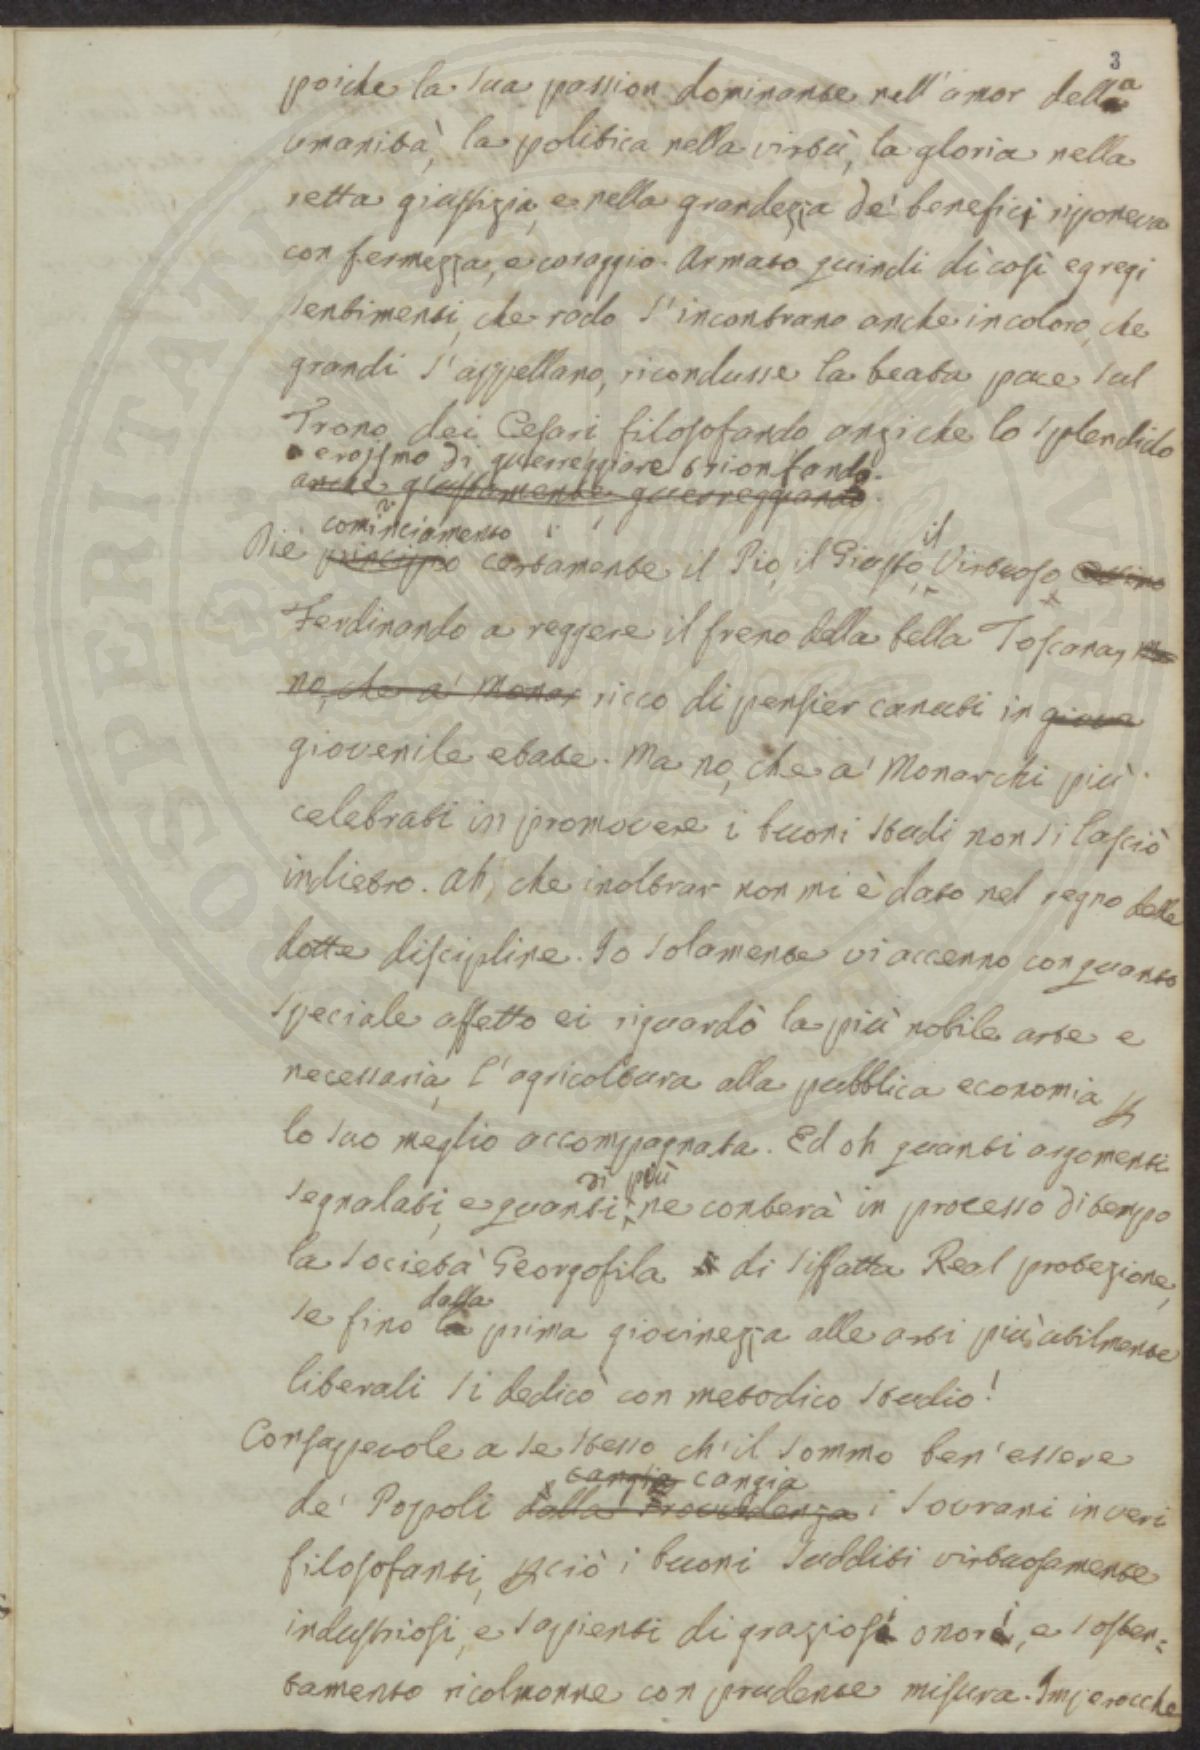 3
poiche la sua passion dominante nell'amor della
umanità, la politica nella virtù, la gloria nella
retta giustizia, e nella grandezza de' benefici riponeva
con fermezza, e coraggio. Armato quindi di così egregi
sentimenti, che rado s'incontrano anche in coloro, che
grandi s'appellano, ricondusse la beata pace sul
Trono dei Cesari filosofando anziche lo splendido
eroismo di guerreggiare trionfando.
anche giustamente guerreggiando.
cominciamento il
Diè principio certamente il Pio, il Giusto, Virtuoso
Ferdinando a reggere il freno della bella Toscana,
no, che a' Monar ricco di pensier canuti in giova
giovenile etate. Ma no, che a' Monarchi più
celebrati in promovere i buoni studi non si lasciò
indietro. Ah, che inoltrar non mi è dato nel regno delle
dotte discipline. Io solamente vi accenno con quanto
speciale affetto ei riguardò la più nobile arte e
necessaria, l'agricoltura alla pubblica economia p
lo suo meglio accompagnata. Ed oh quanti argomenti
di più
segnalati, e quanti ne conterà in processo di tempo
la Società Georgofila di siffatta Real protezione,
dalla
se fino la prima giovinezza alle arti più utilmente
liberali si dedicò con metodico studio!
Consapevole a se stesso ch'il sommo ben'essere
cangia cangia
de' Popoli dalla Provvidenza i Sovrani in veri
filosofanti, pciò i buoni Sudditi virtuosamente
industriosi, e sapienti di graziosi onori, e sosten=
tamento ricolmonne con prudente misura. Imperocche
SPERITATI